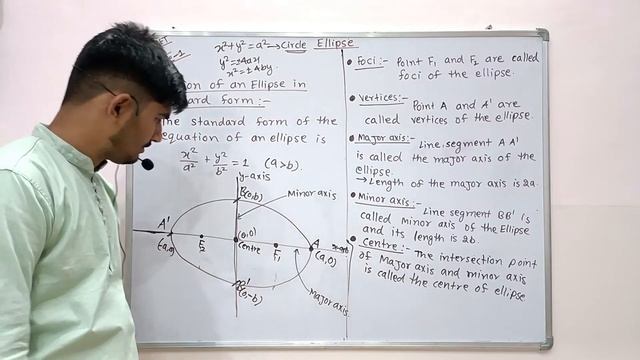 x² + y² = a² → Circle
Ellipse
y² = ±4ax
x² = ±4by
on of an Ellipse in
dard form:-
The standard form of the
equation of an ellipse is
x²/a² + y²/b² = 1 (a>b).
y-axis
B(0,b)
Minor axis
A'
(-a,0)
F₂
(0,0)
centre
F₁
A
(a,0)
B'
(0,-b)
Major axis
• Foci:- Point F₁ and F₂ are called
foci of the ellipse.
• Vertices:- Point A and A' are
called vertices of the ellipse.
• Major axis:- Line segment A A'
is called the major axis of the
ellipse.
→ Length of the major axis is 2a.
• Minor axis:- Line segment BB' is
called minor axis of the Ellipse
and its length is 2b.
• Centre:- The intersection point
of Major axis and minor axis
is called the centre of ellipse